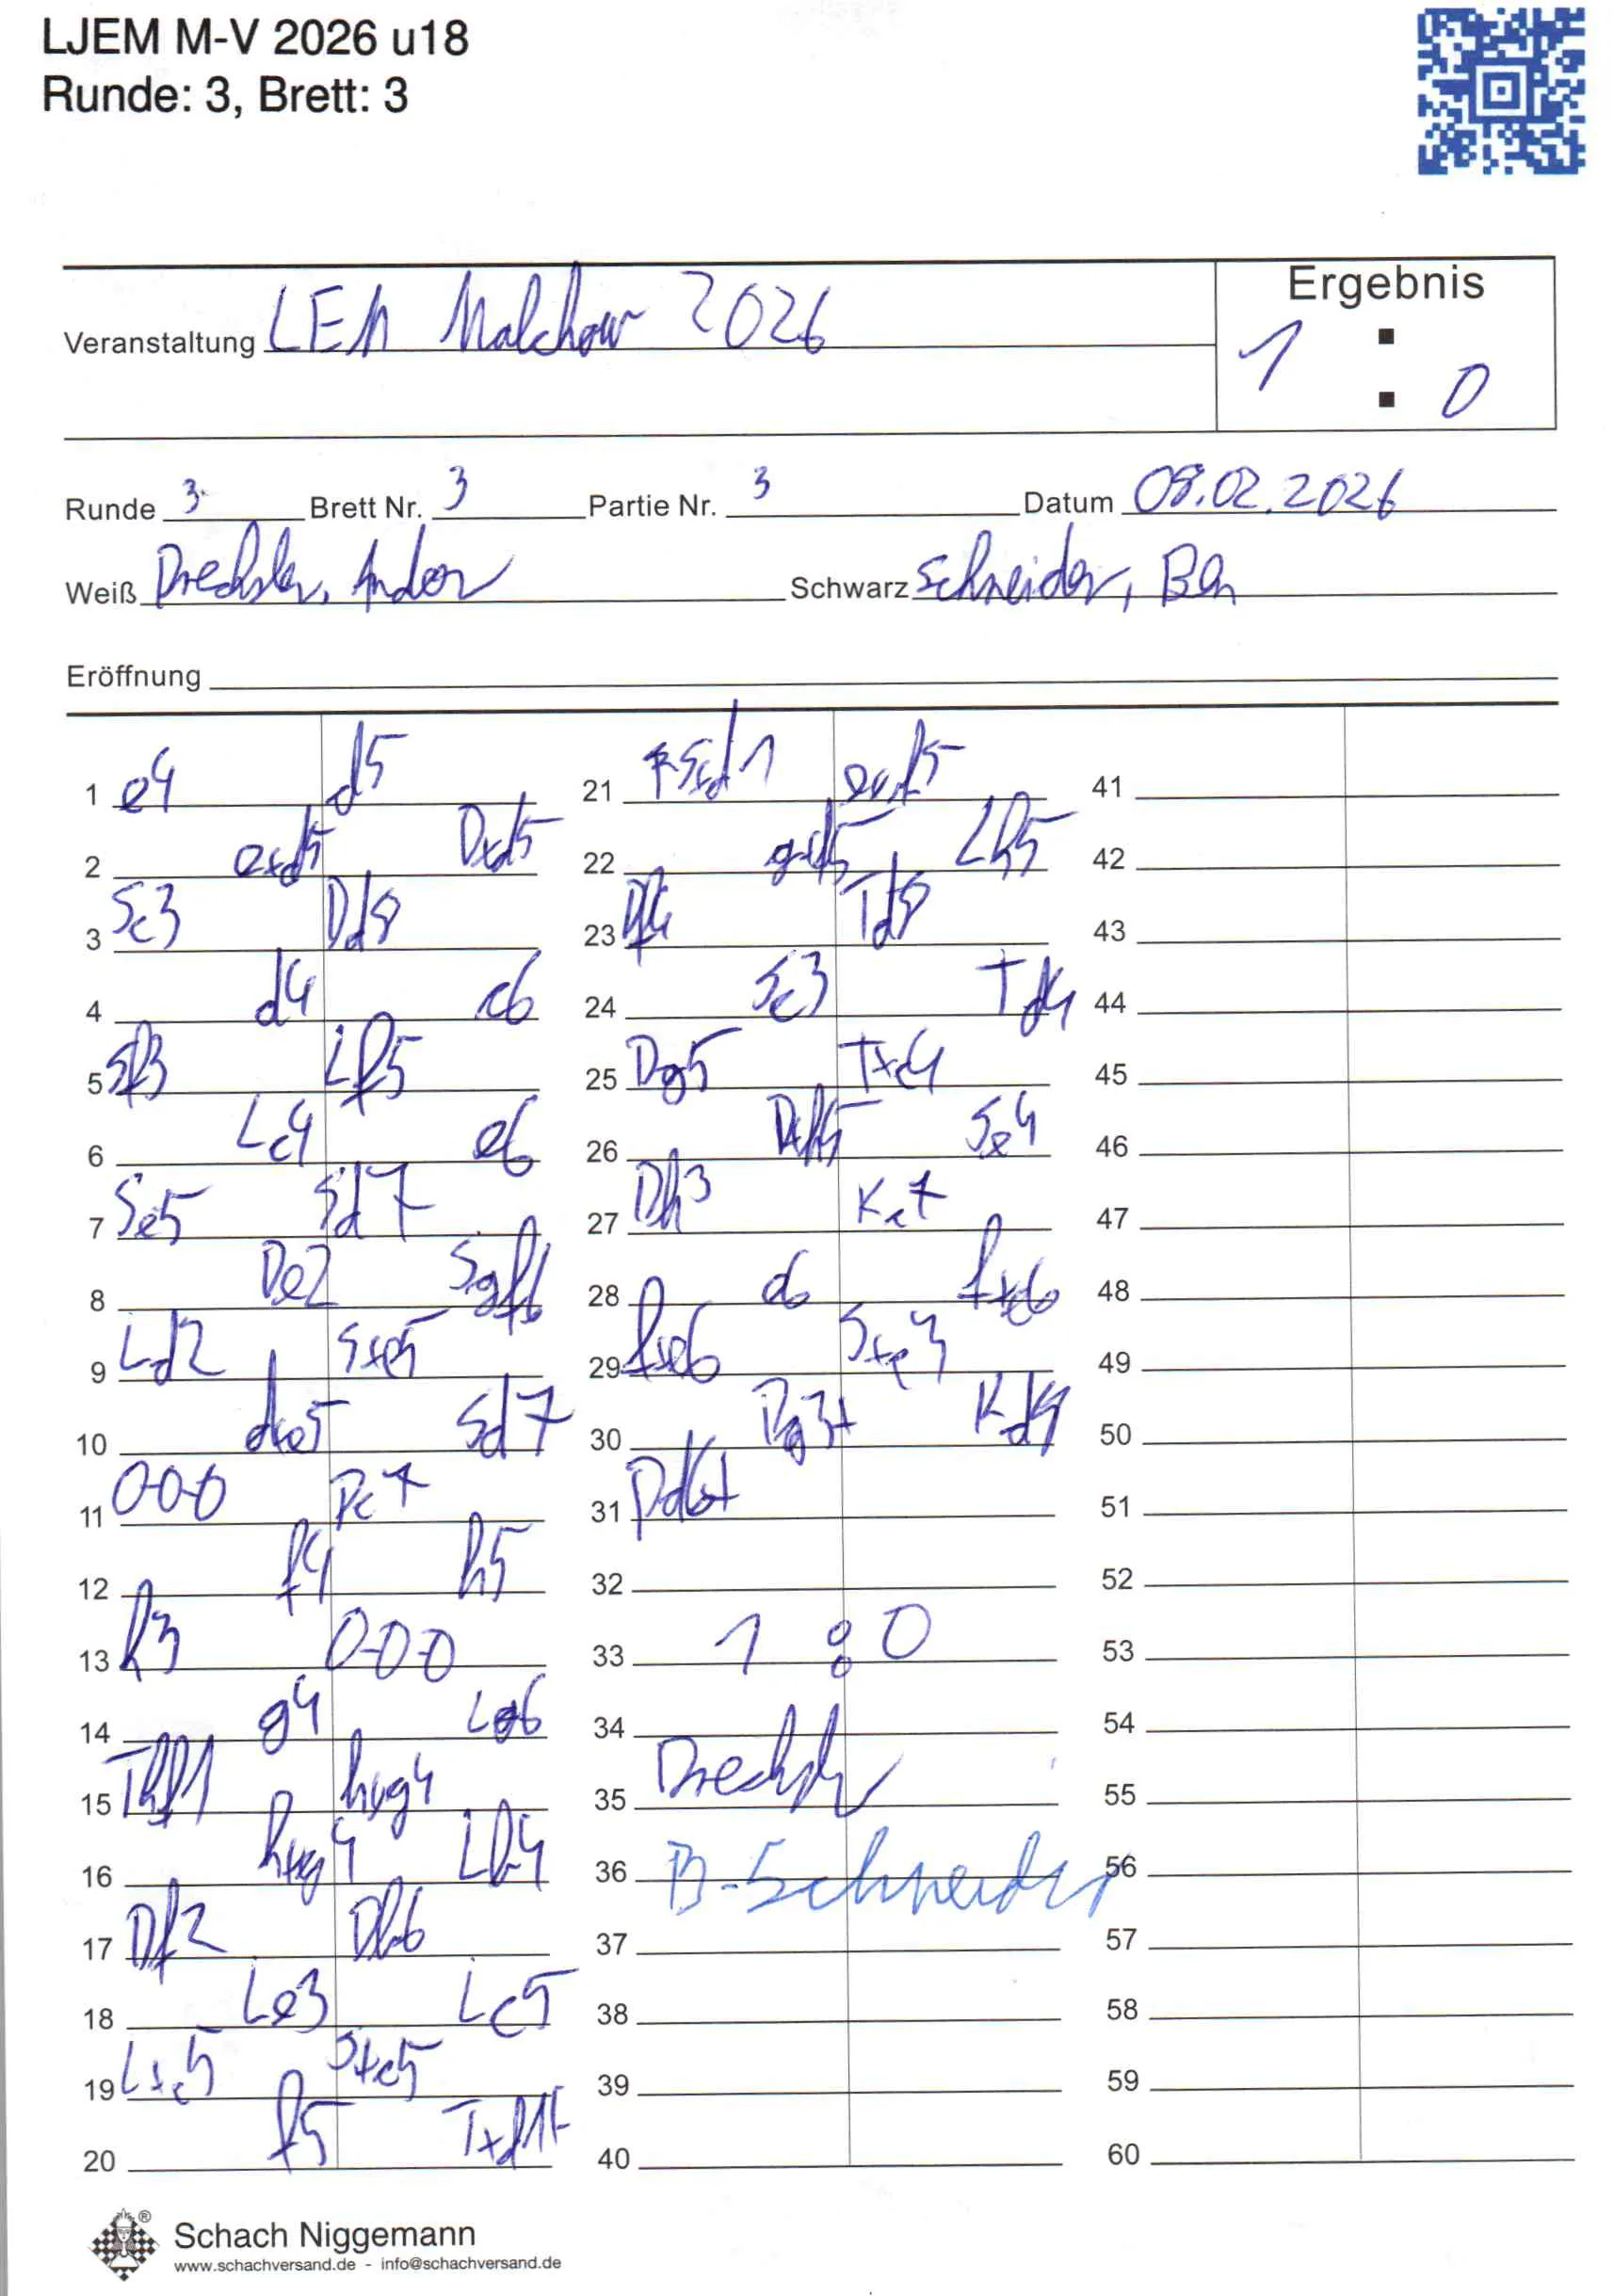 LJEM M-V 2026 u18
Runde: 3, Brett: 3
Veranstaltung LEM Malchow 2026
Ergebnis
1 : 0
Runde 3 Brett Nr. 3 Partie Nr. 3 Datum 09.02.2026
Weiß Drechsler, Andor Schwarz Schneider, Ben
Eröffnung
1 e4 d5
2 exd5 Dxd5
3 Sc3 Dd8
4 d4 c6
5 Sf3 Lf5
6 Lc4 e6
7 Se5 Sd7
8 De2 Sgf6
9 Ld2 Sxe5
10 dxe5 Sd7
11 0-0-0 Dc7
12 f4 h5
13 h3 0-0-0
14 g4 Lg6
15 Thf1 hxg4
16 hxg4 Lh4
17 Df2 Db6
18 Le3 Lc5
19 Lxc5 Sxc5
20 f5 Txd1+
21 Sxd1 exf5
22 gxf5 Lh5
23 Df4 Td8
24 Sc3 Td4
25 Dg5 Txc4
26 Dxh5 Se4
27 Dh3 Kc7
28 e6 fxe6
29 fxe6 Sxc3
30 Dg3+ Kd8
31 Dd6+
32
33 1 : 0
34
35 Drechsler
36 B. Schneider
37
38
39
40
41
42
43
44
45
46
47
48
49
50
51
52
53
54
55
56
57
58
59
60
Schach Niggemann
www.schachversand.de - info@schachversand.de